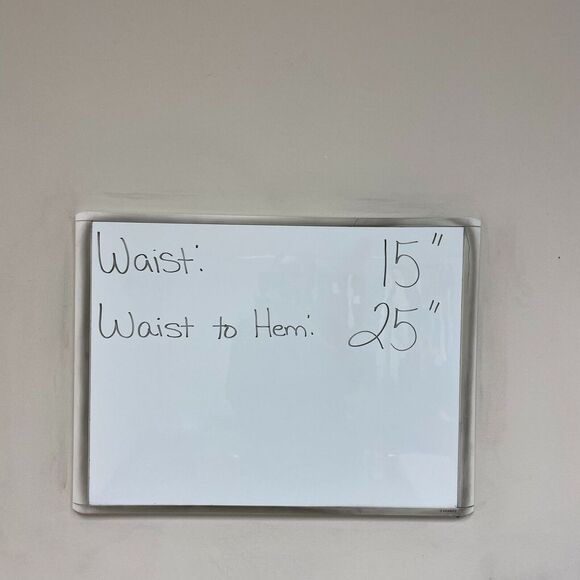 Waist: 15"
Waist to Hem: 25"